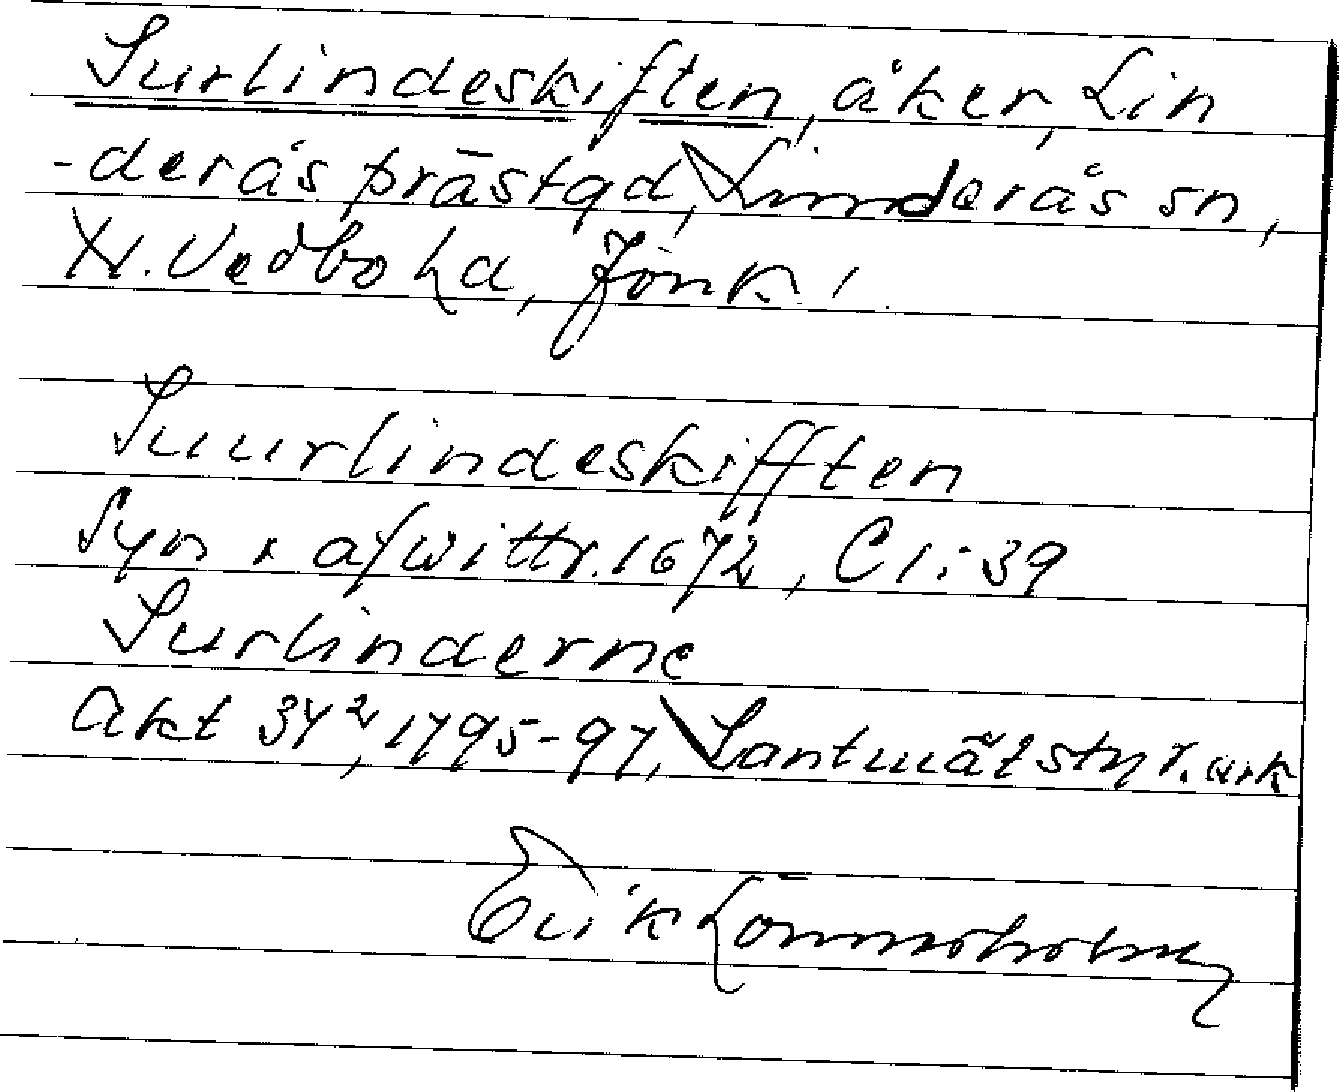 Surlindeskiften, åker, Lin
-derås prästgd, Linderås sn,
N. Vedbo hd, Jönk.
Suurlindeskifften
Syn & afwittr. 1672, C1:39
Surlinderne
Akt 34², 1795-97, Lantmätstyr. ark
Erik Lönnerholm